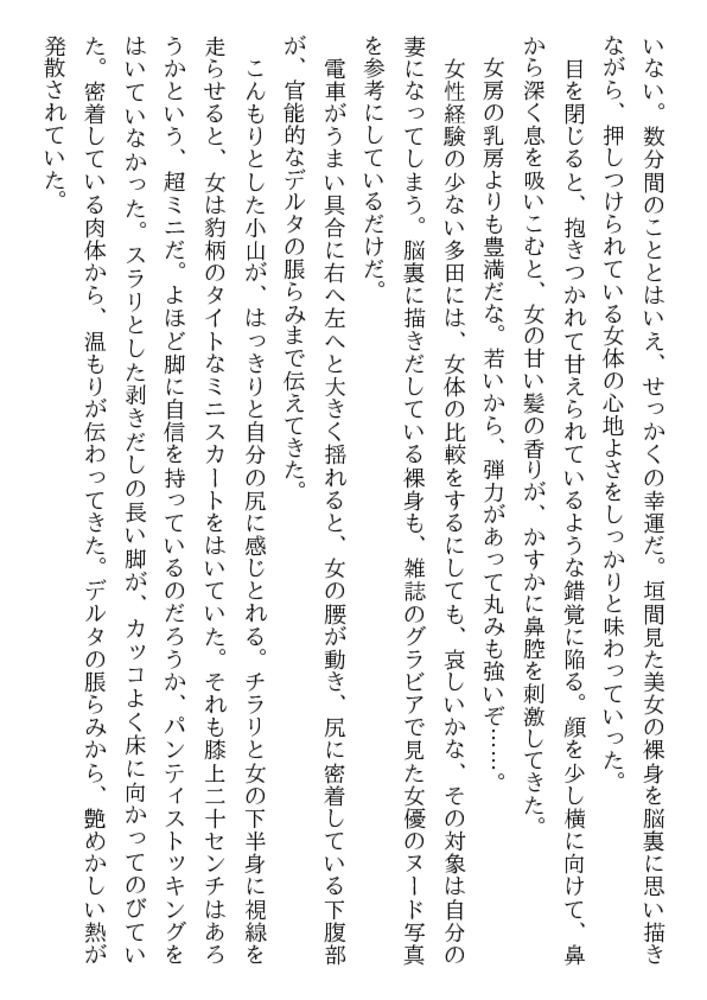 いない。数分間のこととはいえ、せっかくの幸運だ。垣間見た美女の裸身を脳裏に思い描き
ながら、押しつけられている女体の心地よさをしっかりと味わっていった。
目を閉じると、抱きつかれて甘えられているような錯覚に陥る。顔を少し横に向けて、鼻
から深く息を吸いこむと、女の甘い髪の香りが、かすかに鼻腔を刺激してきた。
女房の乳房よりも豊満だな。若いから、弾力があって丸みも強いぞ……。
女性経験の少ない多田には、女体の比較をするにしても、哀しいかな、その対象は自分の
妻になってしまう。脳裏に描きだしている裸身も、雑誌のグラビアで見た女優のヌード写真
を参考にしているだけだ。
電車がうまい具合に右へ左へと大きく揺れると、女の腰が動き、尻に密着している下腹部
が、官能的なデルタの脹らみまで伝えてきた。
こんもりとした小山が、はっきりと自分の尻に感じとれる。チラリと女の下半身に視線を
走らせると、女は豹柄のタイトなミニスカートをはいていた。それも膝上二十センチはあろ
うかという、超ミニだ。よほど脚に自信を持っているのだろうか、パンティストッキングを
はいていなかった。スラリとした剥きだしの長い脚が、カッコよく床に向かってのびてい
た。密着している肉体から、温もりが伝わってきた。デルタの脹らみから、艶めかしい熱が
発散されていた。